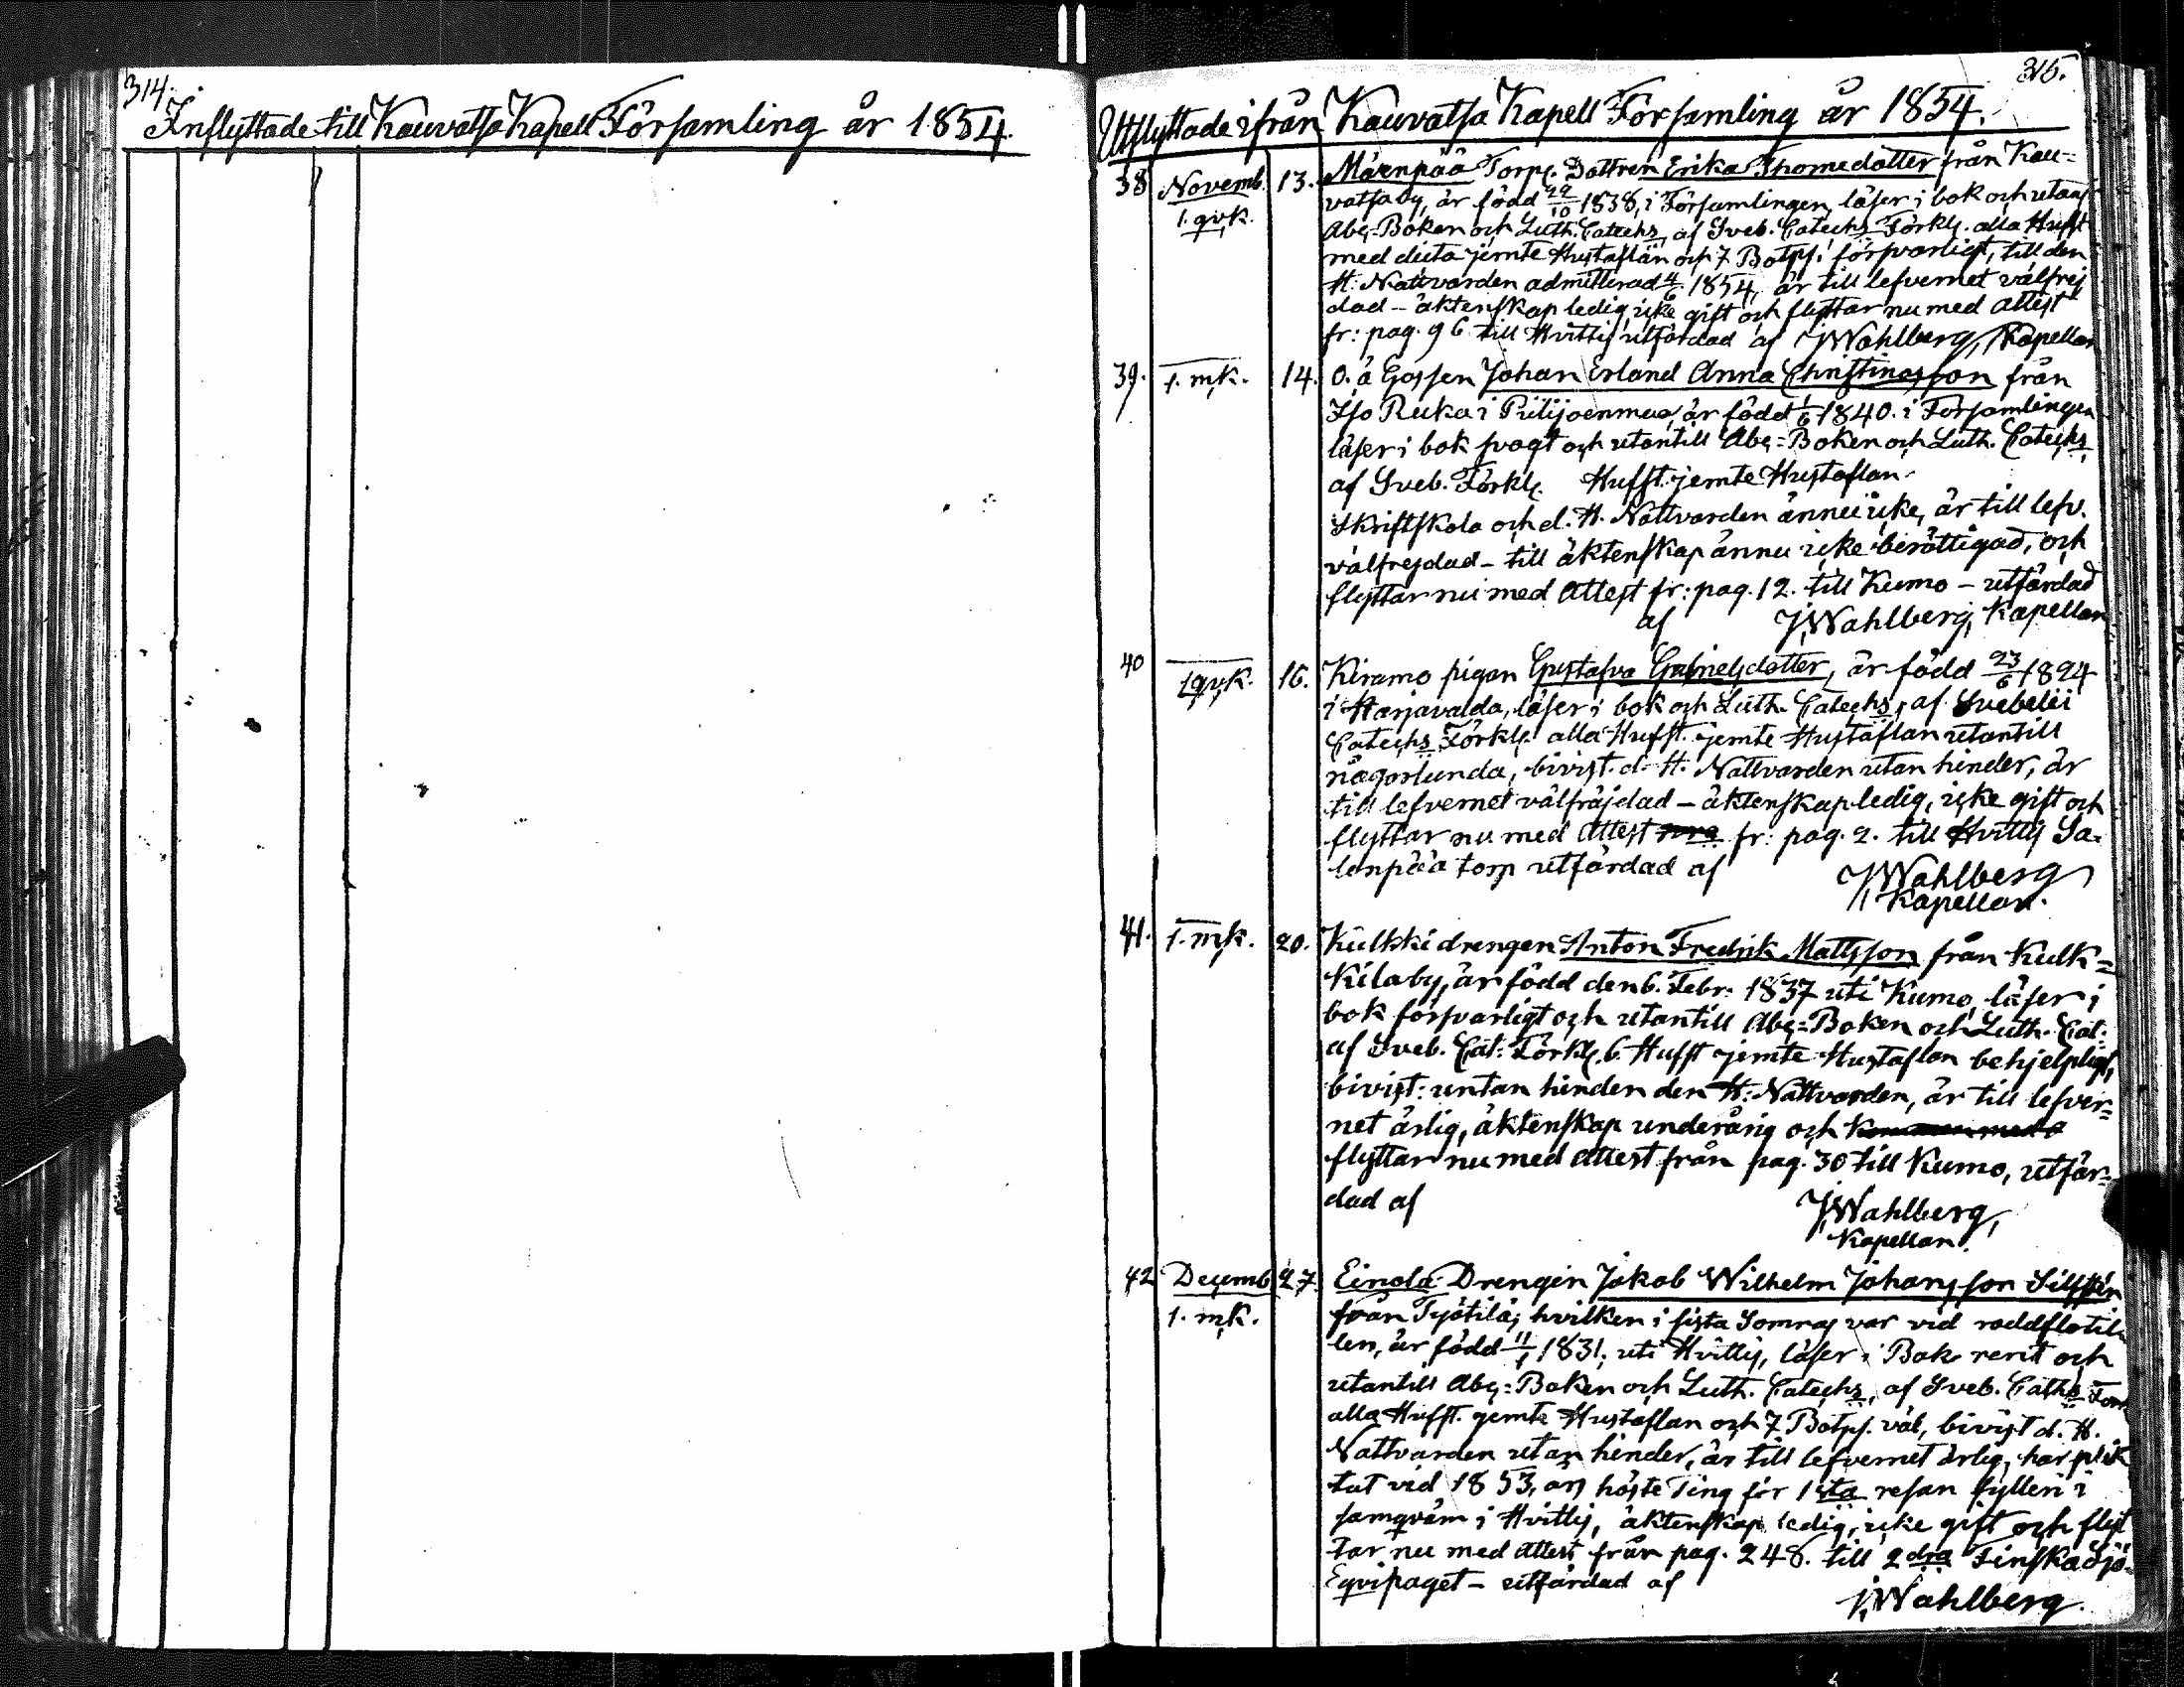 314.
Inflyttade till Kauvatsa Kapell Församling år 1854.
315.
Utflyttade ifrån Kauvatsa Kapell Församling år 1854.
38 Novemb. 13. Mäenpää Torp. Dottren Erika Thomedotter från Kau=
1. qvk. vatsa by, är född 22/10 1838, i Församlingen, läser i bok och utan
Abc-Boken och Luth. Catechs, af Sveb. Catechs Förkl. alla Hufst
med dicta jemte Hustaflan och 7 Botps. försvarligt, till den
H. Nattvarden admitterad 4/6 1854, är till lefvernet välfrej
dad - äktenskap ledig, icke gift och flyttar nu med Attest
fr: pag. 96 till Hvittis utfärdad af JWahlberg, Kapellan
39. 1. mk. 14. O. ä Gossen Johan Erland Anna Christinasson från
Iso Ruka i Piilijoenmaa, är född 1/6 1840. i Församlingen
läser i bok svagt och utantill Abc-Boken och Luth. Catechs,
af Sveb. Förkl. Hufst. jemte Hustaflan.
Skriftskola och d. H. Nattvarden ännu icke, är till lefv.
välfrejdad - till äktenskap ännu icke berättigad, och
flyttar nu med Attest fr: pag. 12. till Kumo - utfärdad
af JWahlberg, Kapellan
40 1 qvk. 16. Kiramo pigan Gustafva Gabrielsdotter, är född 23/6 1824
i Harjavalda, läser i bok och Luth. Catechs, af Svebelii
Catechs Förkl. alla Hufst. jemte Hustaflan utantill
någorlunda, bivist. d. H. Nattvarden utan hinder, är
till lefvernet välfräjdad - äktenskap ledig, icke gift och
flyttar nu med Attest fr: pag. 2. till Hvittis Sa-
lenpää torp utfärdad af JWahlberg
Kapellan.
41. 1. mk. 20. Kulkki drengen Anton Fredrik Mattsson från Kulk=
kila by, är född den 6. Febr. 1837 uti Kumo, läser i
bok försvarligt och utantill Abc-Boken och Luth. Cat:
af Sveb. Cat: Förkl. 6 Hufst jemte Hustaflan behjelpligt,
bivist: untan hinder den H: Nattvarden, är till lefver=
net ärlig, äktenskap underårig och
flyttar nu med attest från pag. 30 till Kumo, utfär=
dad af JWahlberg,
Kapellan.
42 Decemb 27. Einola Drengen Jakob Wilhelm Johansson
1. mk. från Työtilä; hvilken i sista Somras var vid roddflotil
len, är född 11/1 1831, uti Hvittis, läser i Bok rent och
utantill Abc-Boken och Luth. Catechs, af Sveb. Catchs Förk
alla Hufst. jemte Hustaflan och 7 Botps. väl, bivist d. H.
Nattvarden utan hinder, är till lefvernet ärlig, har plik
tat vid 1853, års höste Ting för 1sta resan fylleri i
samqväm i Hvittis, äktenskap ledig, icke gift och flyt
tar nu med attest från pag. 248. till 2dra Finska Sjö-
Eqvipaget - utfärdad af
JWahlberg.